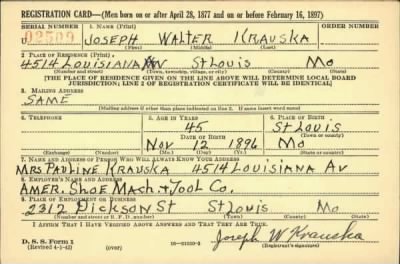 REGISTRATION CARD—(Men born on or after April 28, 1877 and on or before February 16, 1897)
SERIAL NUMBER 1. NAME (Print) ORDER NUMBER
U 02509 JOSEPH WALTER KRAUSKA
(First) (Middle) (Last)
2. PLACE OF RESIDENCE (Print)
4514 LOUISIANA AV St Louis Mo
(Number and street) (Town, township, village, or city) (County) (State)
[THE PLACE OF RESIDENCE GIVEN ON THE LINE ABOVE WILL DETERMINE LOCAL BOARD
JURISDICTION; LINE 2 OF REGISTRATION CERTIFICATE WILL BE IDENTICAL]
3. MAILING ADDRESS
SAME
[Mailing address if other than place indicated on line 2. If same insert word same]
4. TELEPHONE 5. AGE IN YEARS 6. PLACE OF BIRTH
45 St Louis
DATE OF BIRTH (Town or county)
Nov 12 1896 Mo
(Exchange) (Number) (Mo.) (Day) (Yr.) (State or country)
7. NAME AND ADDRESS OF PERSON WHO WILL ALWAYS KNOW YOUR ADDRESS
MRS PAULINE KRAUSKA 4514 LOUISIANA AV
8. EMPLOYER'S NAME AND ADDRESS
AMER. SHOE MACH & TOOL Co.
9. PLACE OF EMPLOYMENT OR BUSINESS
2312 DICKSON ST St Louis Mo
(Number and street or R. F. D. number) (Town) (County) (State)
I AFFIRM THAT I HAVE VERIFIED ABOVE ANSWERS AND THAT THEY ARE TRUE.
D. S. S. Form 1
(Revised 4-1-42) (over) 16—21630-2 Joseph W Krauska
(Registrant's signature)